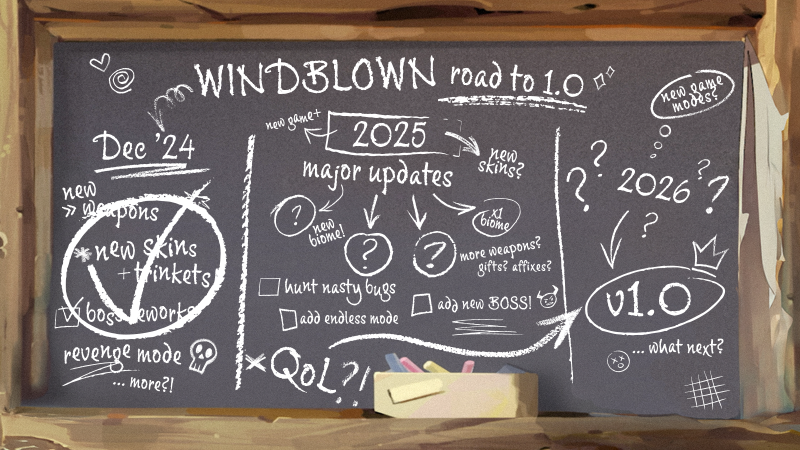 WINDBLOWN road to 1.0
Dec '24
new
» weapons
* new skins
+ trinkets!
boss reworks
revenge mode
... more?!
new game+
2025
major updates
new
skins?
?
new
biome!
?
?
x1
biome
more weapons?
gifts? affixes?
hunt nasty bugs
add endless mode
add new BOSS!
QoL?!
new game
modes?
? ? 2026 ? ?
?
v1.0
... what next?